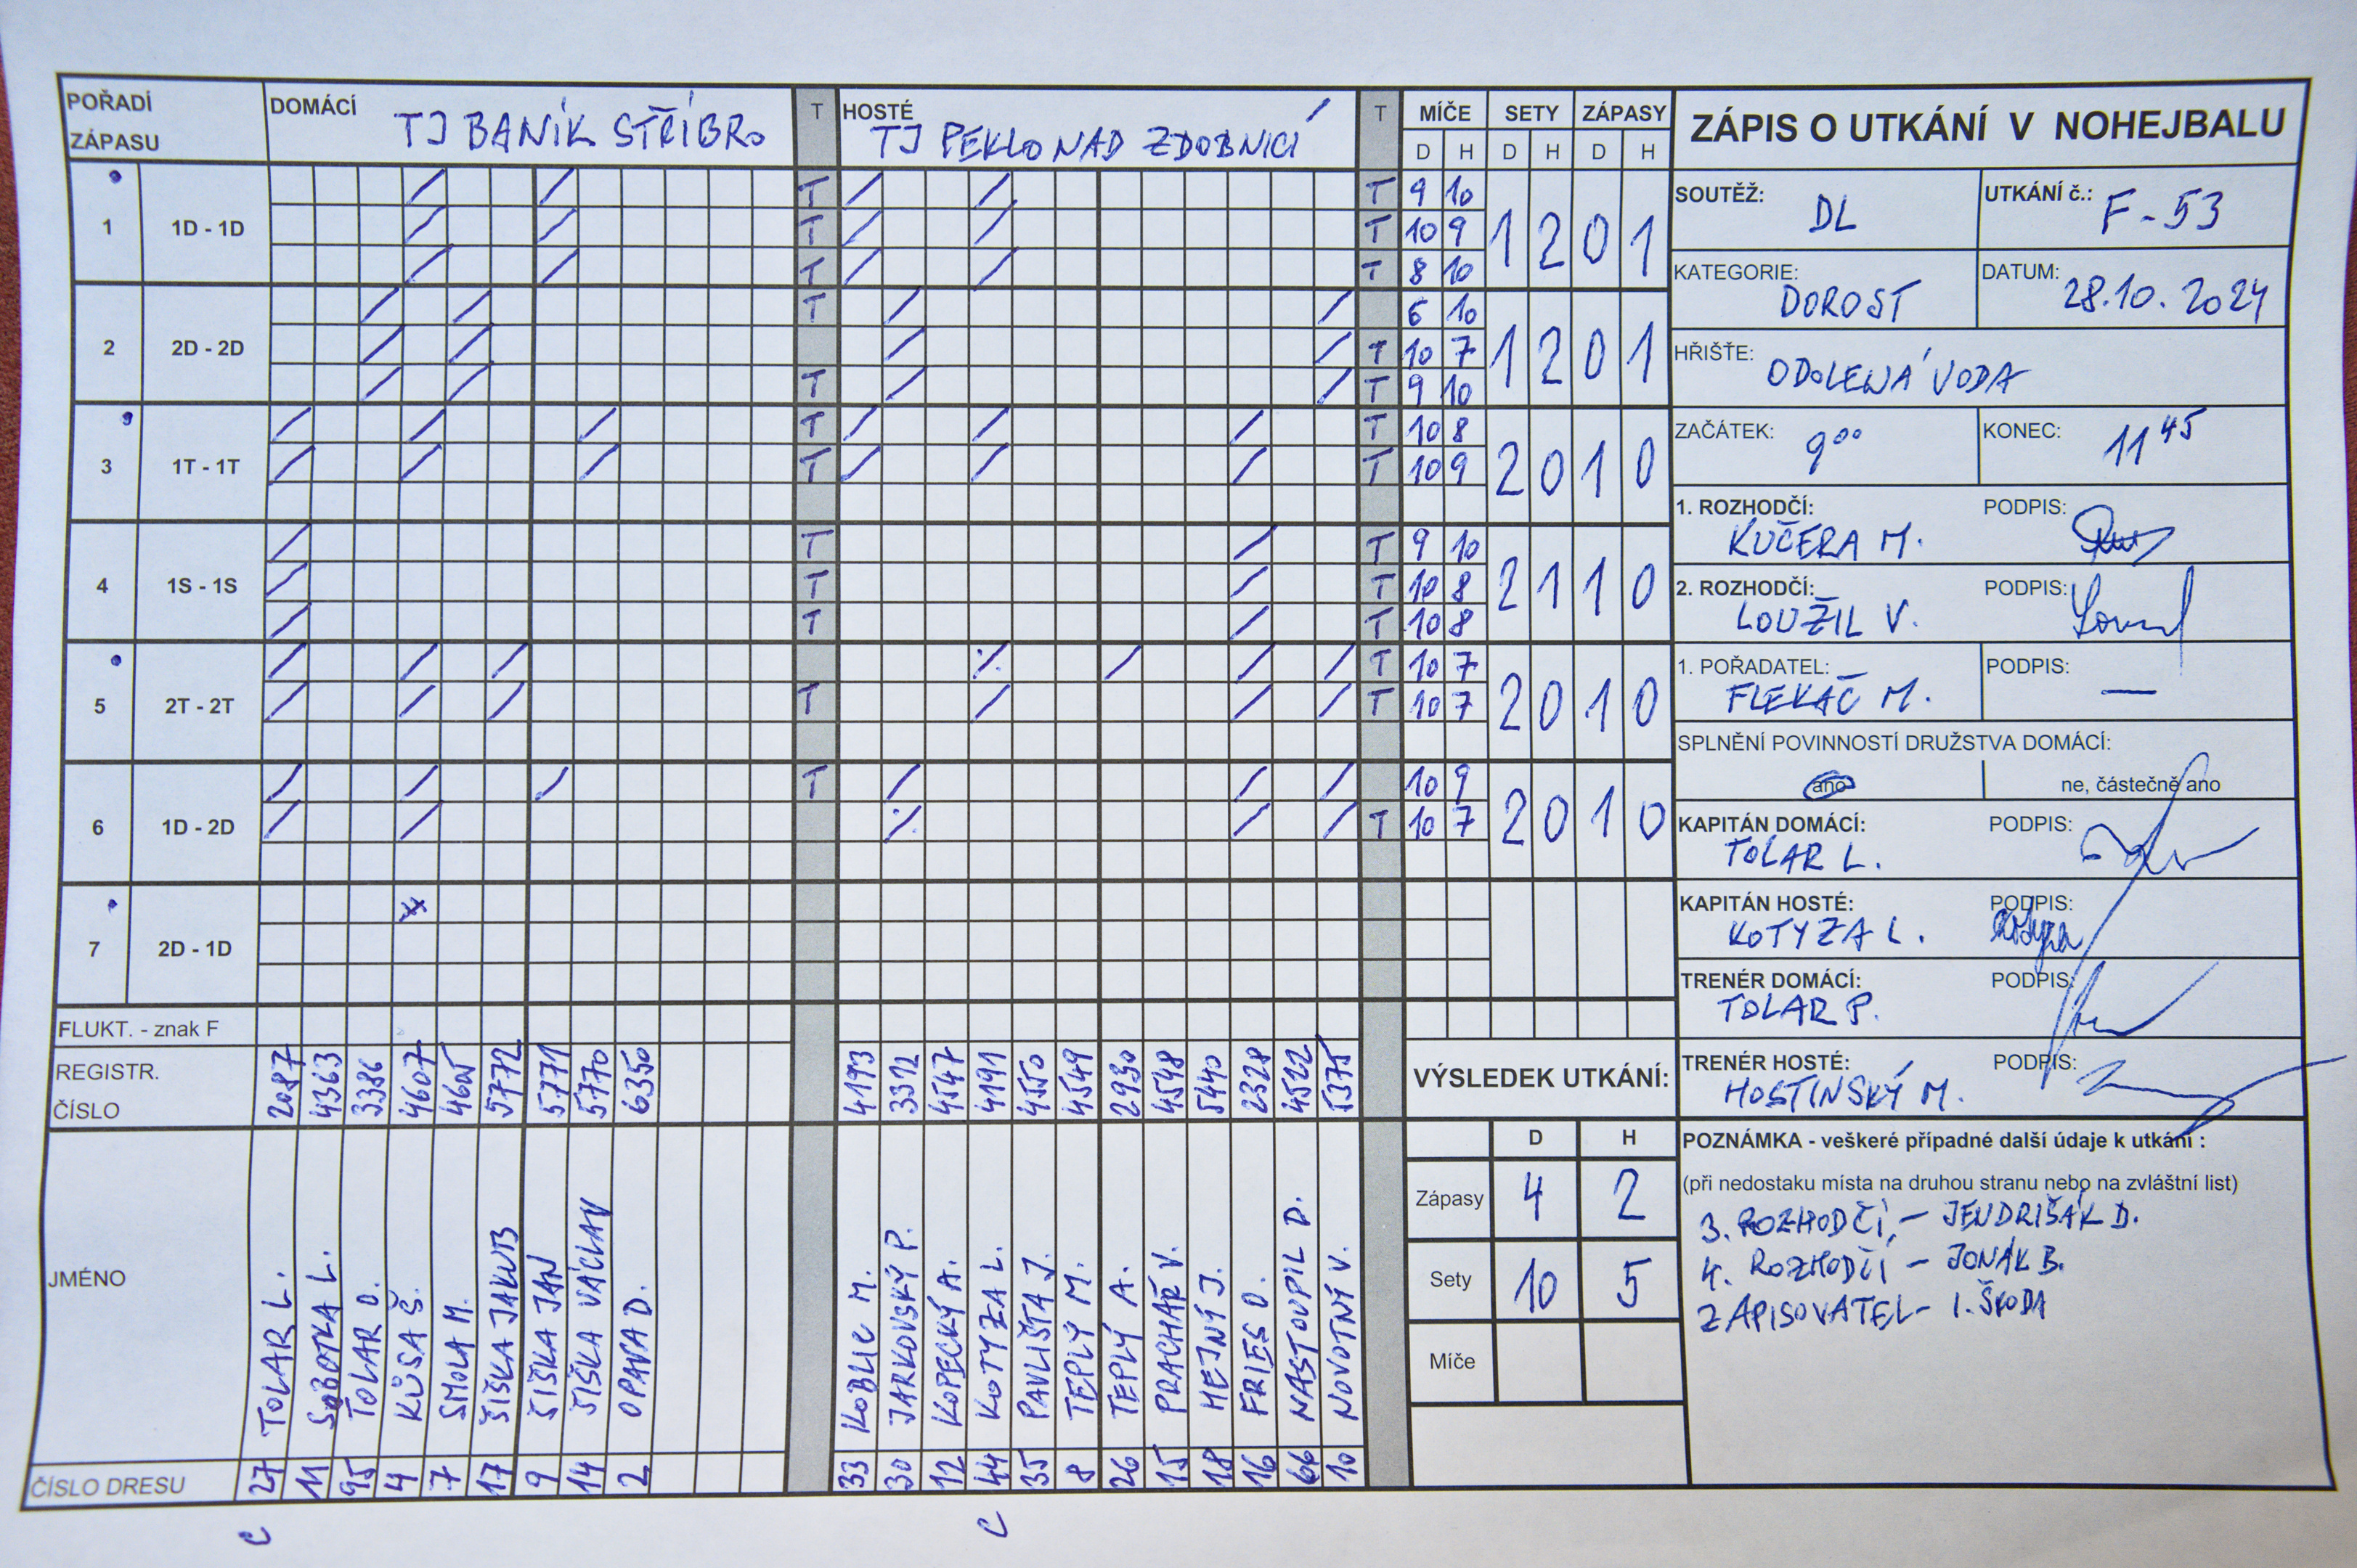 POŘADÍ ZÁPASU
DOMÁCÍ TJ BANÍK STŘÍBRO
T
HOSTÉ TJ PEKLO NAD ZDOBNICÍ
T
MÍČE SETY ZÁPASY
D H D H D H
ZÁPIS O UTKÁNÍ V NOHEJBALU
1 1D - 1D
T T 9 10
T T 10 9 1 2 0 1
T T 8 10
2 2D - 2D
T 6 10
T 10 7 1 2 0 1
T T 9 10
3 1T - 1T
T T 10 8
T T 10 9 2 0 1 0
4 1S - 1S
T T 9 10
T T 10 8 2 1 1 0
T T 10 8
5 2T - 2T
T 10 7
T T 10 7 2 0 1 0
6 1D - 2D
T 10 9
T 10 7 2 0 1 0
7 2D - 1D
FLUKT. - znak F
REGISTR. ČÍSLO
2087 4363 3386 4607 4605 5772 5771 5770 6350
4193 3312 4547 4191 4550 4549 2930 4548 5440 2328 4522 5375
JMÉNO
TOLAR L.
SOBOTKA L.
TOLAR O.
KŮSA Š.
SMOLA M.
ŠIŠKA JAKUB
ŠIŠKA JAN
ŠIŠKA VÁCLAV
OPAVA D.
KOBLIC M.
JARKOVSKÝ P.
KOPECKÝ A.
KOTYZA L.
PAVLIŠTA J.
TEPLÝ M.
TEPLÝ A.
PRACHAŘ V.
HEJNÝ J.
FRIES O.
NASTOUPIL D.
NOVOTNÝ V.
ČÍSLO DRESU
27 11 95 4 7 17 9 14 2
33 30 12 44 35 8 26 15 18 16 66 10
C C
SOUTĚŽ: DL
UTKÁNÍ č.: F-53
KATEGORIE: DOROST
DATUM: 28.10.2024
HŘIŠTĚ: ODOLENÁ VODA
ZAČÁTEK: 9⁰⁰
KONEC: 11⁴⁵
1. ROZHODČÍ: KUČERA M.
PODPIS:
2. ROZHODČÍ: LOUŽIL V.
PODPIS:
1. POŘADATEL: FLEKAČ M.
PODPIS: —
SPLNĚNÍ POVINNOSTÍ DRUŽSTVA DOMÁCÍ:
ano
ne, částečně ano
KAPITÁN DOMÁCÍ: TOLAR L.
PODPIS:
KAPITÁN HOSTÉ: KOTYZA L.
PODPIS: Kotyza
TRENÉR DOMÁCÍ: TOLAR P.
PODPIS:
TRENÉR HOSTÉ: HOSTINSKÝ M.
PODPIS:
VÝSLEDEK UTKÁNÍ:
D H
Zápasy 4 2
Sety 10 5
Míče
POZNÁMKA - veškeré případné další údaje k utkání :
(při nedostaku místa na druhou stranu nebo na zvláštní list)
3. ROZHODČÍ - JENDRIŠÁK D.
4. ROZHODČÍ - JONÁK B.
ZAPISOVATEL - I. ŠKODA